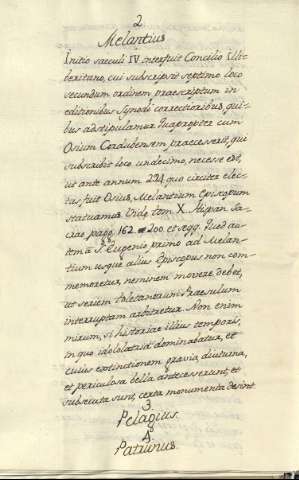 2
Melantius
Initio saeculi IV interfuit Concilio Illi-
beritano, cui subscripsit septimo loco
secundum ordinem praescriptum in
editionibus Synodi correctioribus, qui-
bus adstipulamur. Quapropter cum
Osium Cordubensem praecesserit, qui
subscribit loco undecimo, necesse est,
ut ante annum 294 quo circiter elec-
tus fuit Osius, Melantium Episcopum
statuamus. Vide tom. X. Hispan. Sa-
crae pagg. 162. 200. et seqq. Quod au-
tem à S. Eugenio primo ad Melan-
tium usque alius Episcopus non com-
memoretur, neminem movere debet,
ut seriem Toletanam Praesulum
interruptam arbitretur. Non enim
mirum, si historiae illius temporis,
in quo idololatria dominabatur, et
cuius extinctionem gravia, diuturna,
et periculosa bella antecesserunt, et
subsecuta sunt, certa monumenta desint
3.
Pelagius.
4.
Patrunus.